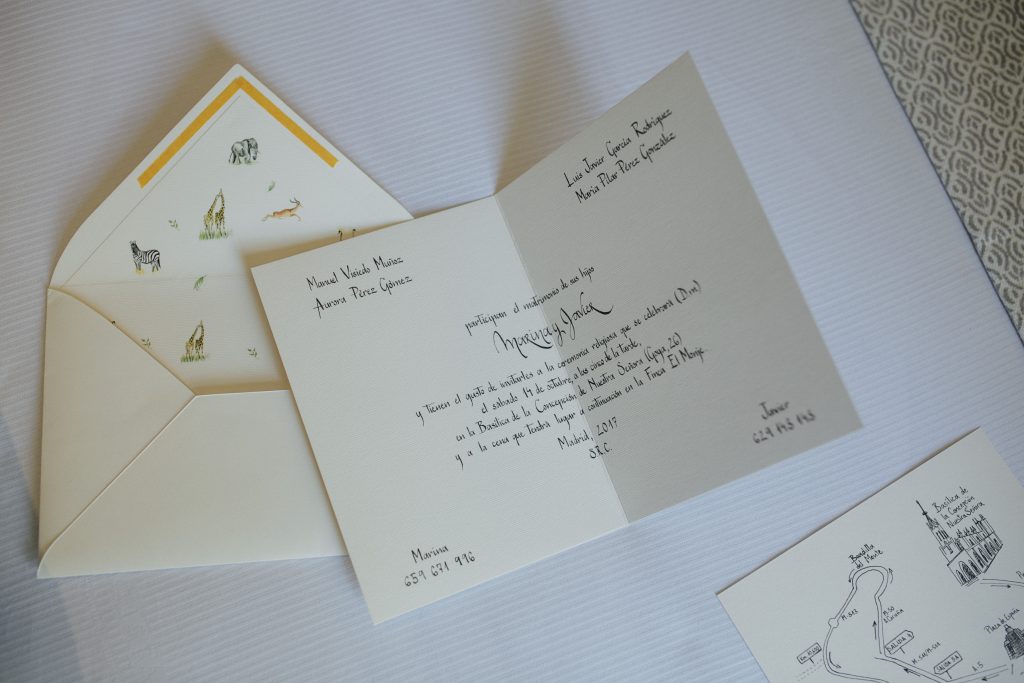 Manuel Visiedo Muñoz
Aurora Pérez Gómez
Luis Javier García Rodríguez
María Pilar Pérez González
participan el matrimonio de sus hijos
Marina y Javier
y tienen el gusto de invitarles a la ceremonia religiosa que se celebrará (D.m.)
el sábado 14 de octubre, a las cinco de la tarde,
en la Basílica de la Concepción de Nuestra Señora (Goya, 26)
y a la cena que tendrá lugar a continuación en la Finca El Monje.
Madrid, 2017
S.R.C.
Marina
659 671 996
Javier
Basílica de
la Concepción
Nuestra Señora
Boadilla
del Monte
M-513
M-50
A Coruña
SALIDA A
SALIDA
Plaza de España
A-5